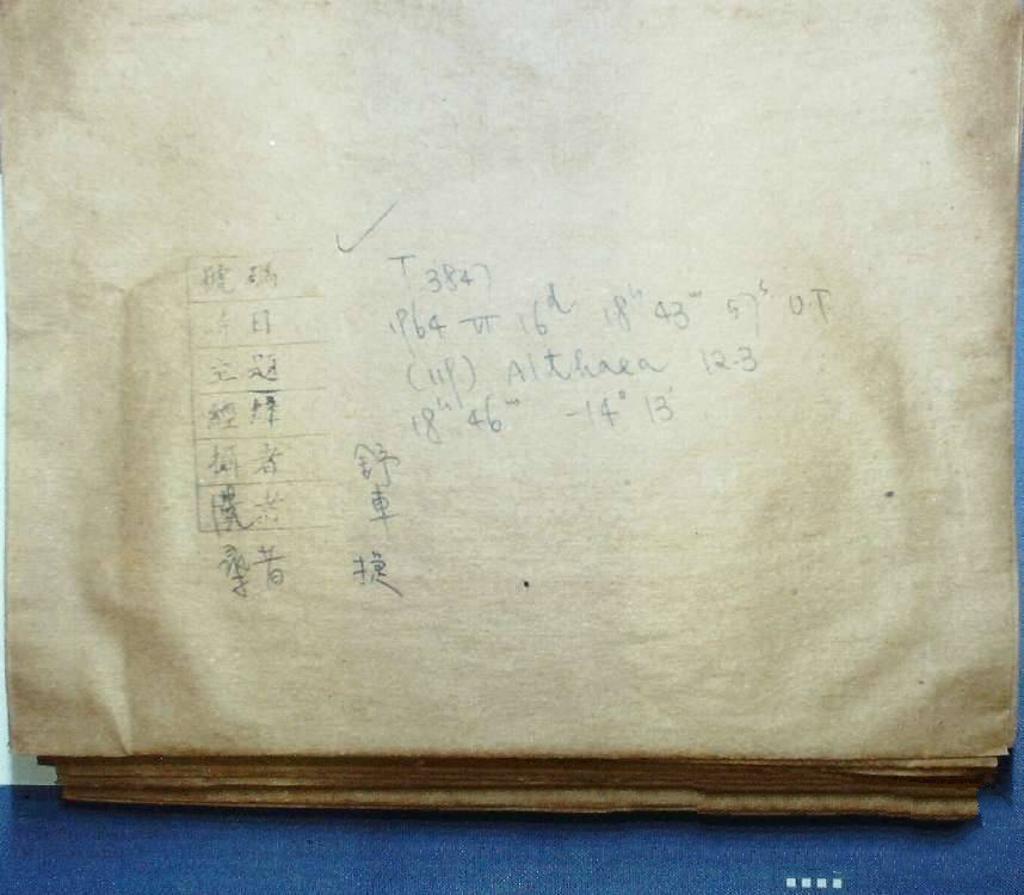 號碼 T 3847
時日 1964 VI 16ᵈ 18ʰ 43ᵐ 57ˢ U.T
主題 (119) Althaea 12.3
經緯 18ʰ 46ᵐ -14° 13′
攝者 舒
車
擬